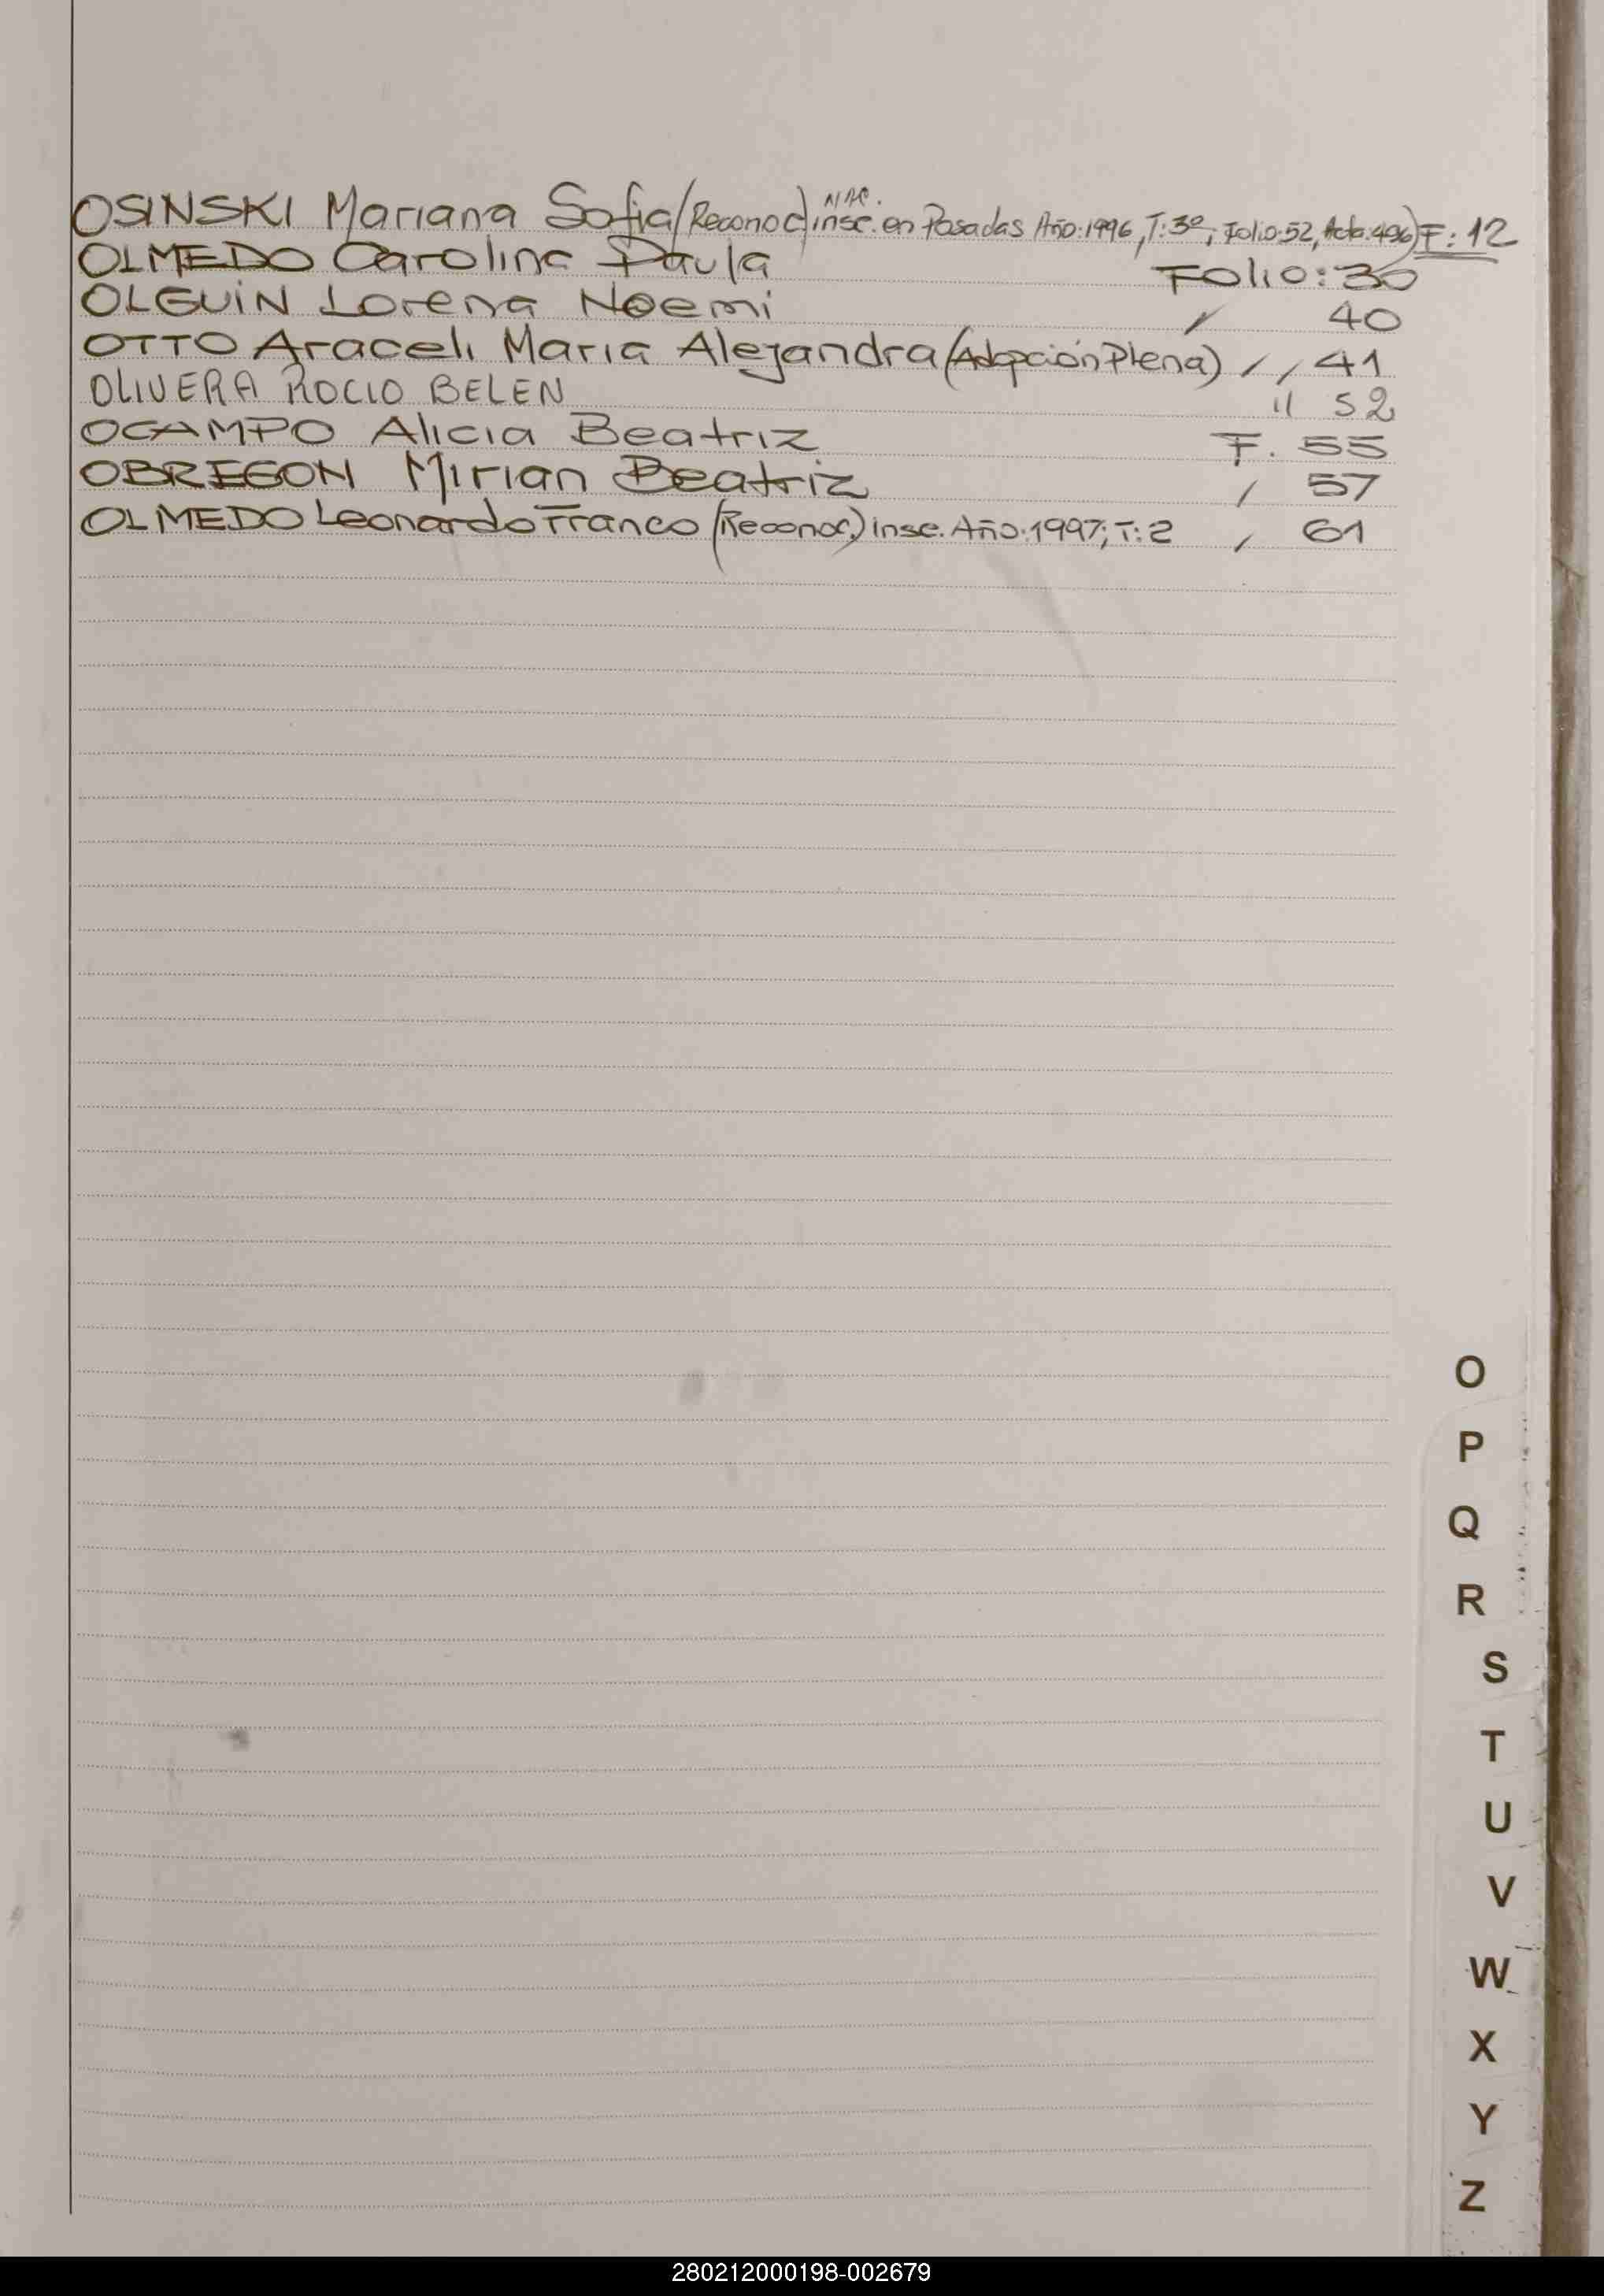 OSINSKI Mariana Sofia (Reconoc) insc. en Posadas Año:1996, T:3º; Folio:52, Acta:496) F: 12
OLMEDO Carolina Paula Folio: 30
OLGUIN Lorena Noemi / 40
OTTO Araceli Maria Alejandra (Adopción Plena) / / 41
OLIVERA ROCIO BELEN 11 52
OCAMPO Alicia Beatriz F. 55
OBREGON Mirian Beatriz / 57
OLMEDO Leonardo Franco (Reconoc.) insc. Año:1997; T:2 / 61
O
P
Q
R
S
T
U
V
W
X
Y
Z
280212000198-002679